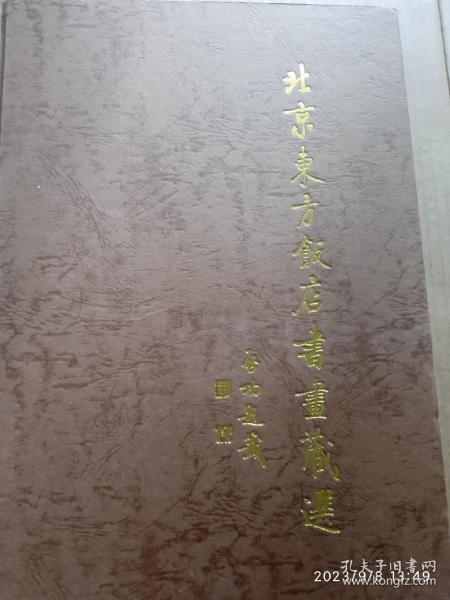 北京東方飯店書畫藏選
启功題簽
孔夫子旧书网
2023/9/8 13:49
www.kongfz.com